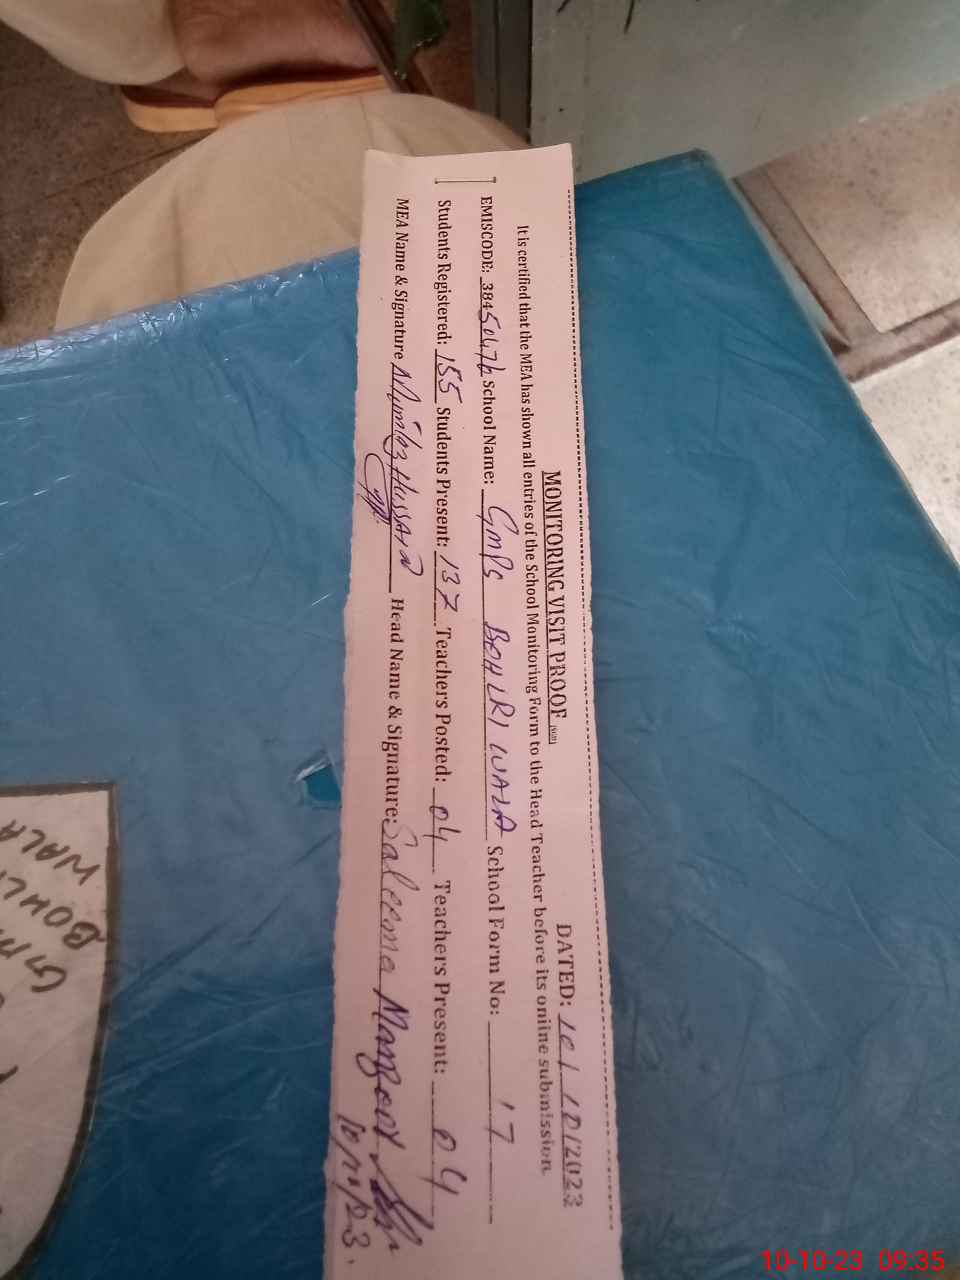 MONITORING VISIT PROOF
DATED: 10/10/2023
It is certified that the MEA has shown all entries of the School Monitoring Form to the Head Teacher before its online submission.
EMISCODE: 38450476 School Name: GMPS BOHLRI WALA School Form No: 17
Students Registered: 155 Students Present: 137 Teachers Posted: 04 Teachers Present: 04
MEA Name & Signature Mumtaz Hussain Head Name & Signature: Saleema Manzoor
10/10/23.
BOHL
WALA
10-10-23 09:35